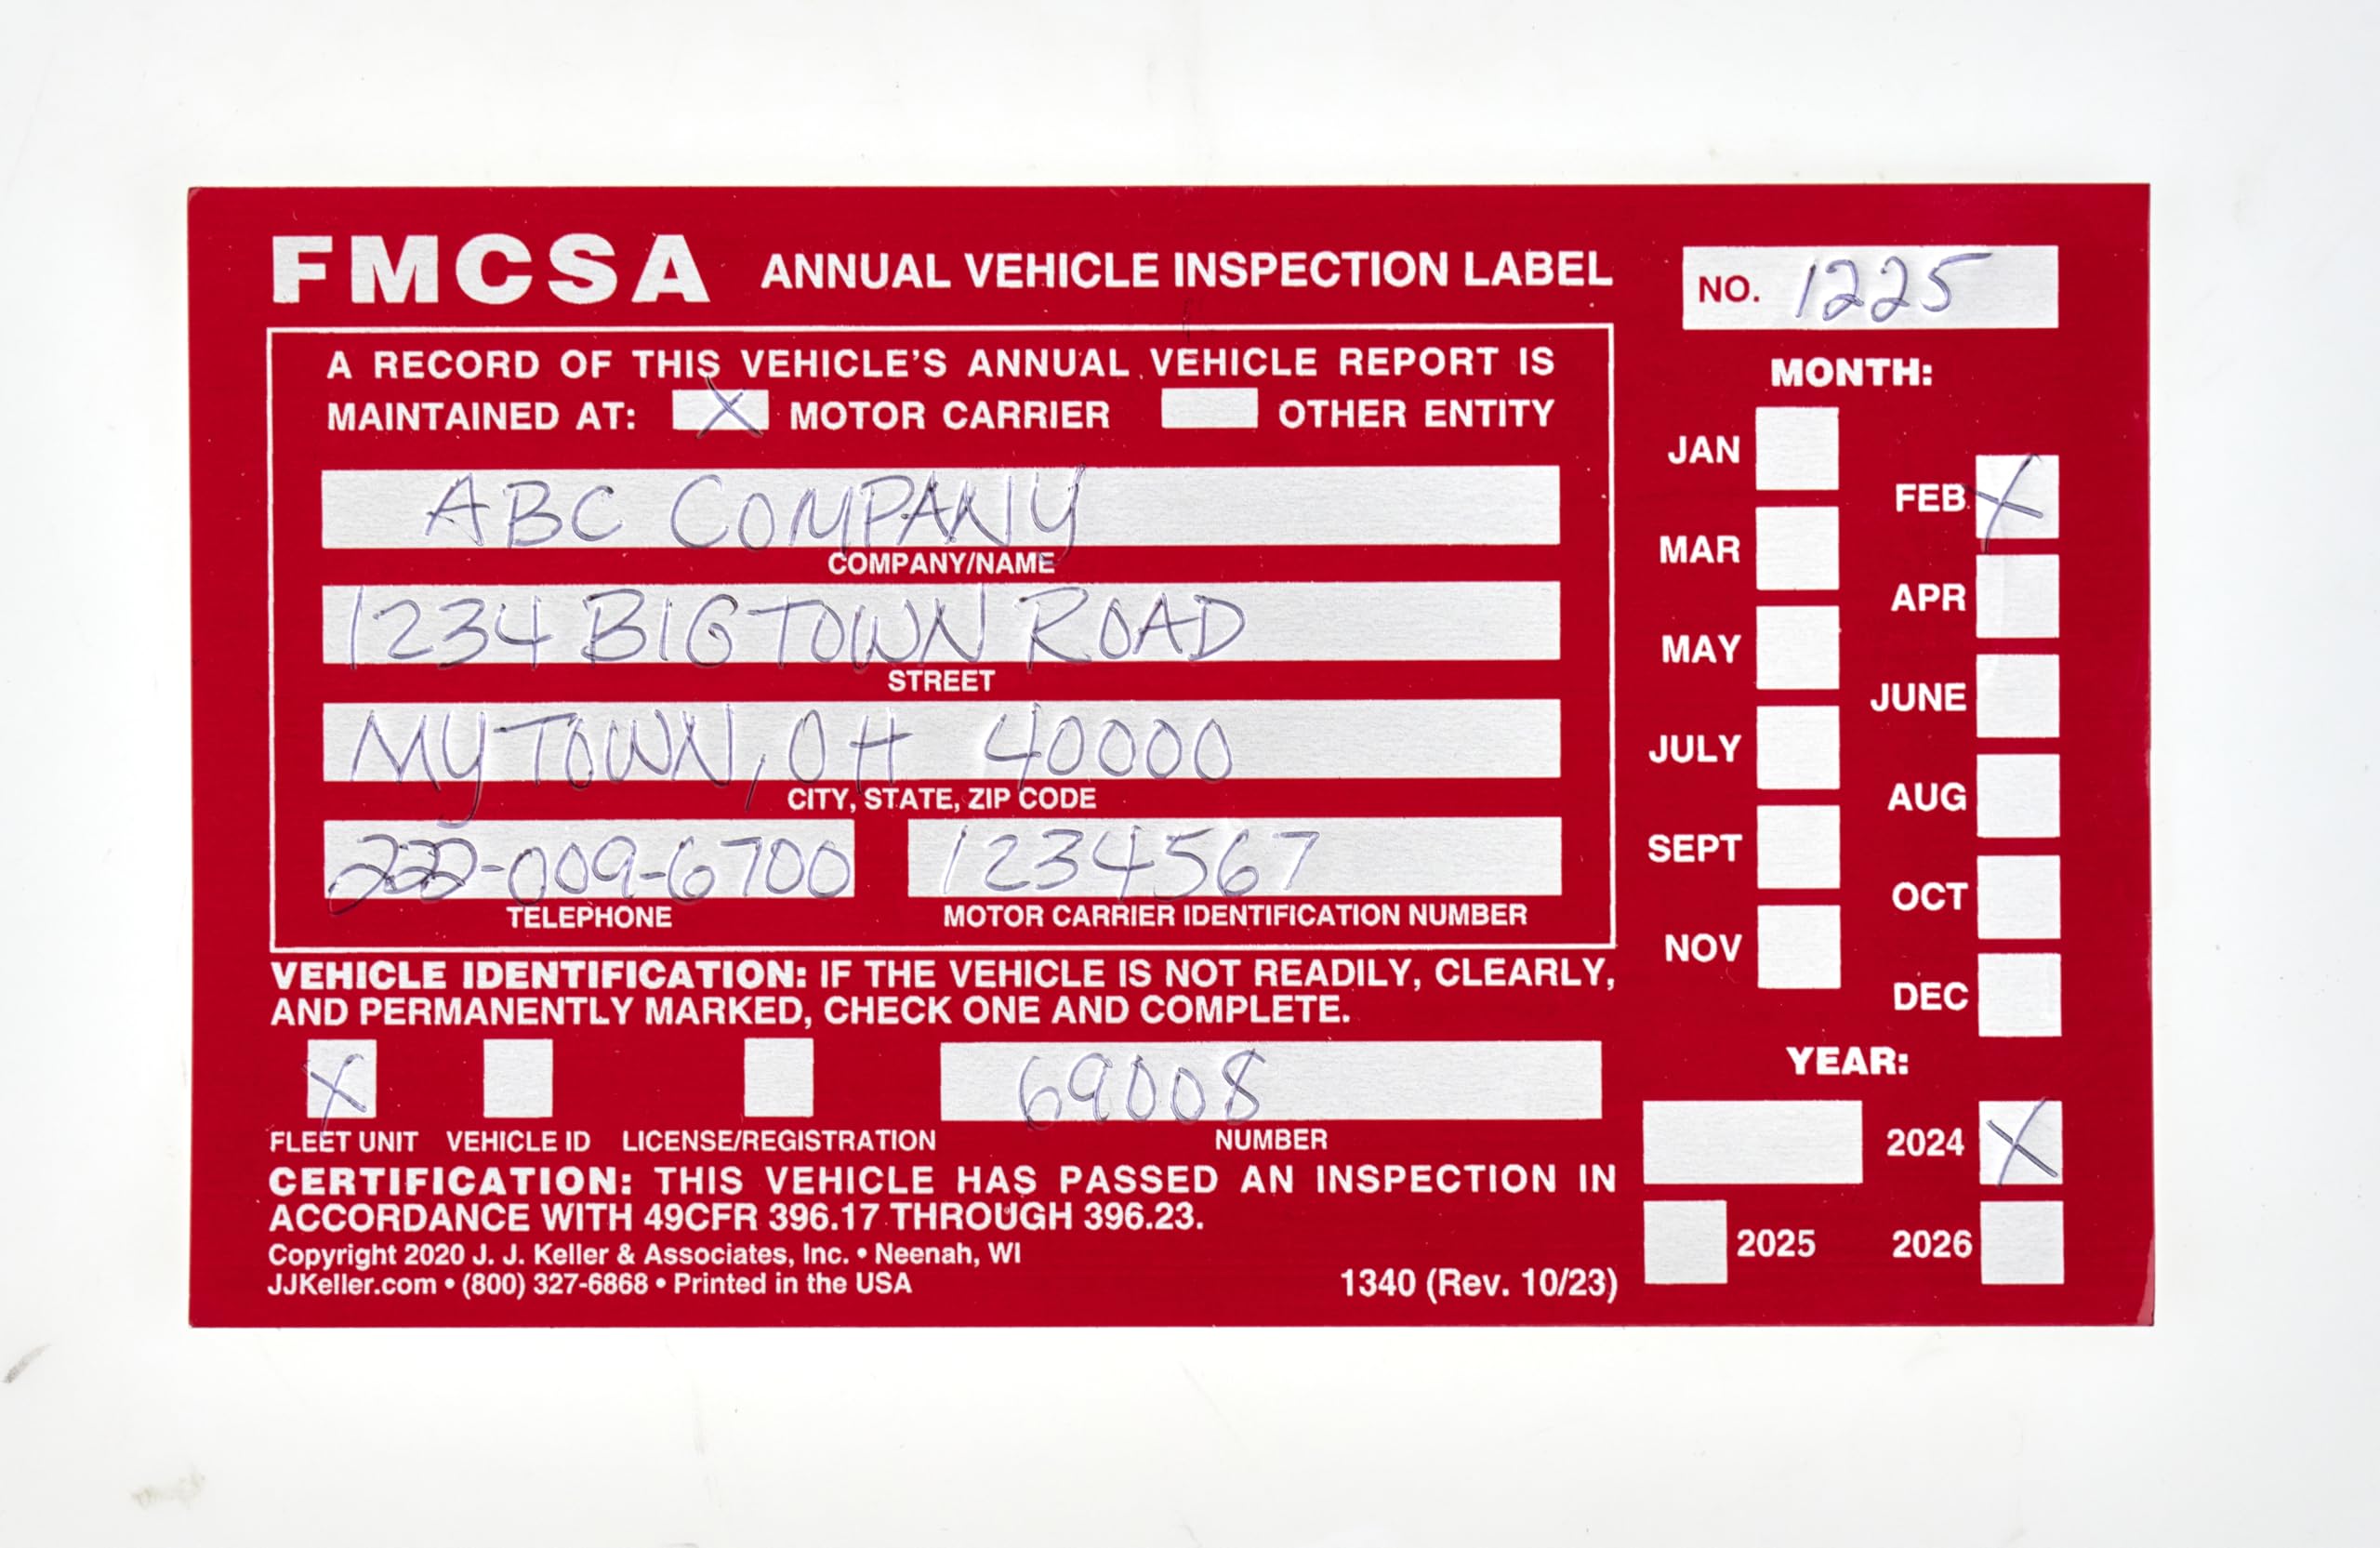 FMCSA ANNUAL VEHICLE INSPECTION LABEL
NO. 1225
A RECORD OF THIS VEHICLE'S ANNUAL VEHICLE REPORT IS
MAINTAINED AT: X MOTOR CARRIER OTHER ENTITY
ABC COMPANY
COMPANY/NAME
1234 BIGTOWN ROAD
STREET
MYTOWN, OH 40000
CITY, STATE, ZIP CODE
222-009-6700 1234567
TELEPHONE MOTOR CARRIER IDENTIFICATION NUMBER
VEHICLE IDENTIFICATION: IF THE VEHICLE IS NOT READILY, CLEARLY,
AND PERMANENTLY MARKED, CHECK ONE AND COMPLETE.
X 69008
FLEET UNIT VEHICLE ID LICENSE/REGISTRATION NUMBER
CERTIFICATION: THIS VEHICLE HAS PASSED AN INSPECTION IN
ACCORDANCE WITH 49CFR 396.17 THROUGH 396.23.
Copyright 2020 J. J. Keller & Associates, Inc. • Neenah, WI
JJKeller.com • (800) 327-6868 • Printed in the USA
1340 (Rev. 10/23)
MONTH:
JAN
FEB X
MAR
APR
MAY
JUNE
JULY
AUG
SEPT
OCT
NOV
DEC
YEAR:
2024 X
2025 2026